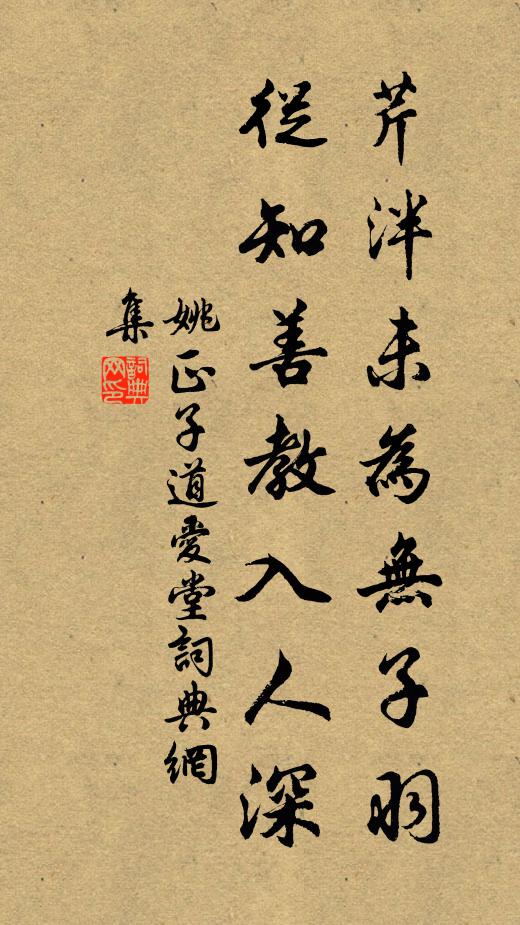 芹泮未為無子羽
從知善教入人深
姚正子道愛堂詞典網
集
詞典網印